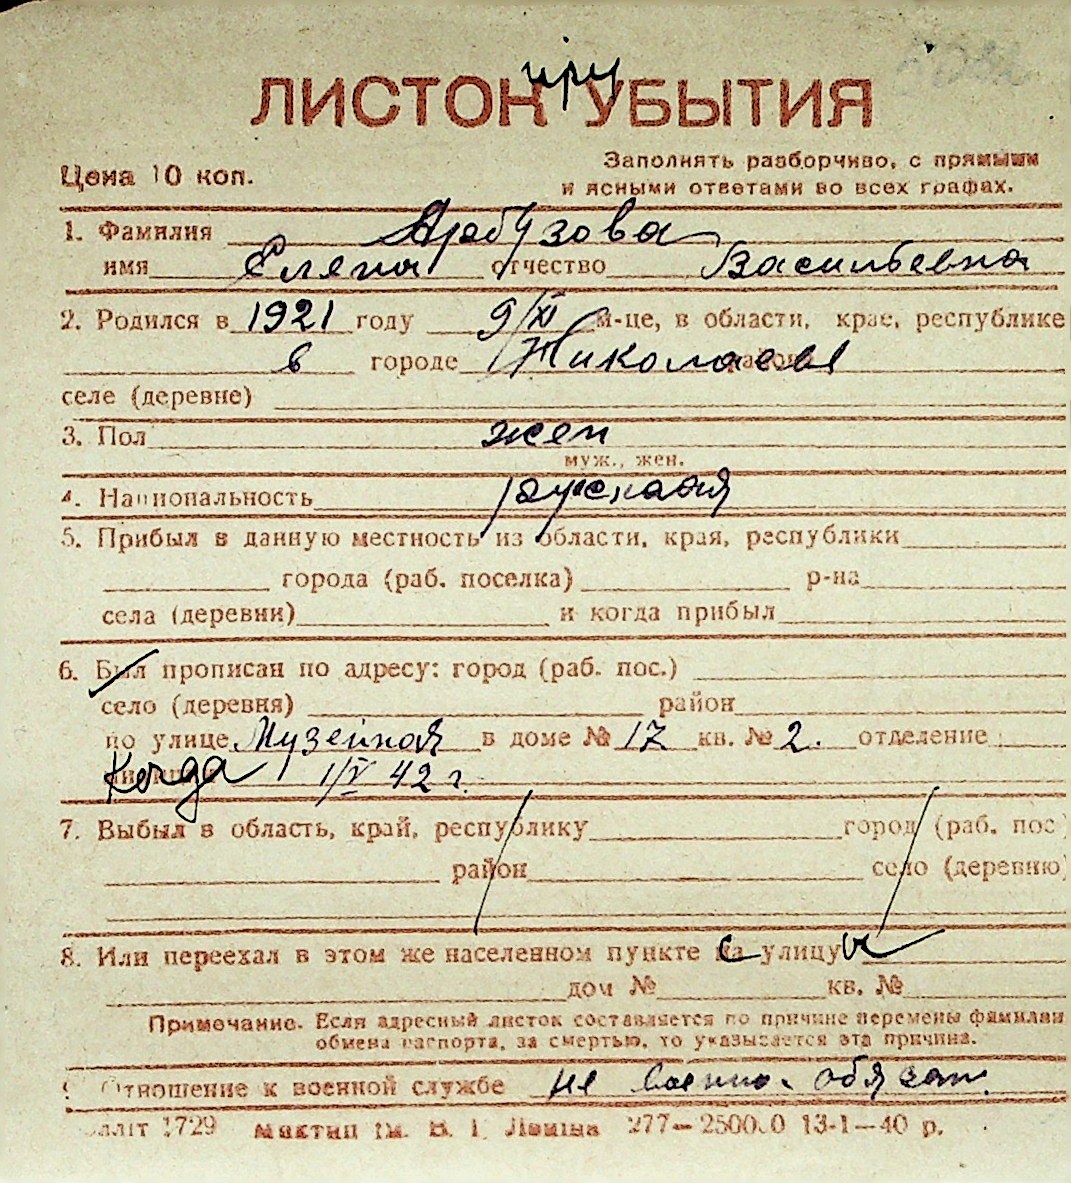 при
ЛИСТОК УБЫТИЯ
Цена 10 коп.
Заполнять разборчиво, с прямыми
и ясными ответами во всех графах.
1. Фамилия Арбузова
имя Елена отчество Васильевна
2. Родился в 1921 году 9/XI м-це, в области, крае, республике
в городе Николаеве
селе (деревне)
3. Пол жен
муж., жен.
4. Национальность русская
5. Прибыл в данную местность из области, края, республики
города (раб. поселка) р-на
села (деревни) и когда прибыл
6. Был прописан по адресу: город (раб. пос.)
село (деревня) район
по улице Музейная в доме № 17 кв. № 2. отделение
Когда 1/V 42 г.
7. Выбыл в область, край, республику город (раб. пос
район село (деревню)
8. Или переехал в этом же населенном пункте с улицы
дом № кв. №
Примечание. Если адресный листок составляется по причине перемены фамилии
обмена паспорта, за смертью, то указывается эта причина.
Отношение к военной службе не военно-обязан.
1729 277—2500 0 13-1—40 р.